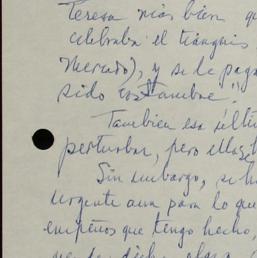 Teresa más bien qu
celebraba el tianguis
Mercado), y se de paga
sido costumbre."
Tambien esa últi
perturbar, pero ellas
Sin embargo, se h
urgente aun para lo que
empeños que tengo hecho,